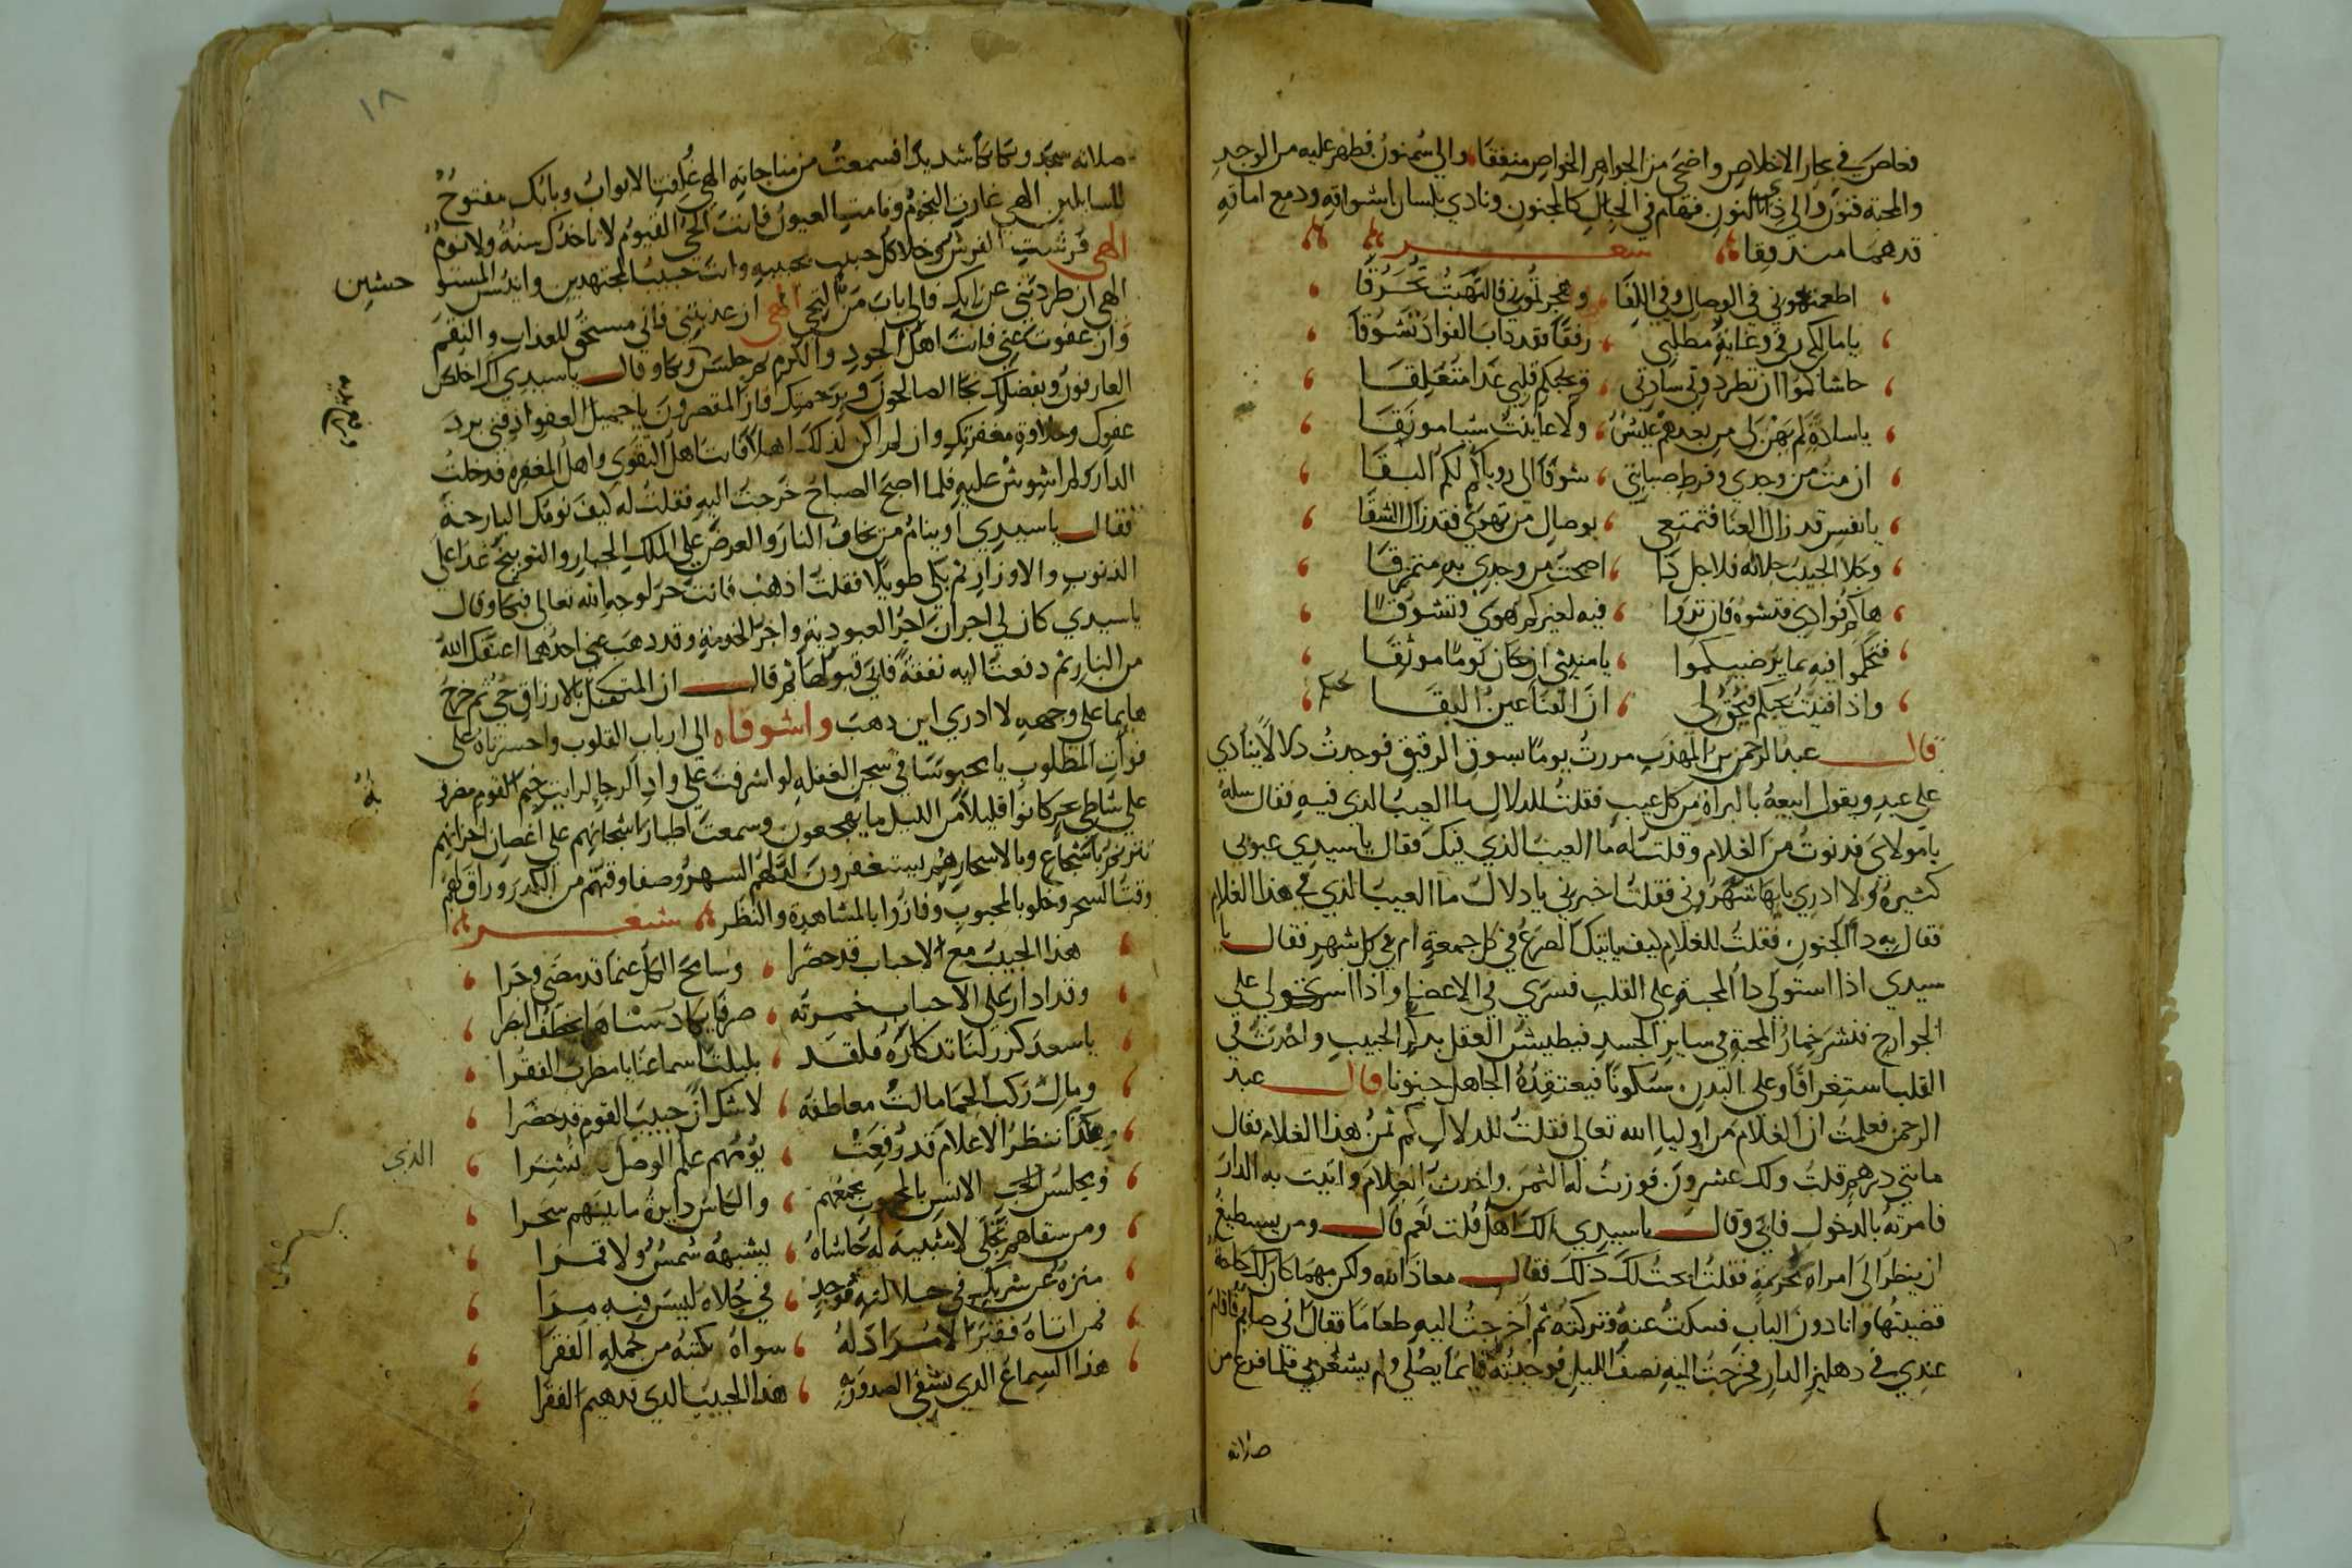 فغاص في بحار الاخلاص واضحى من الجواهر الخواص منفقا والي سمنون فظهر عليه من الوجد
والمحبة فنون والي ذي النون فهام في الجبال كالمجنون ونادي بلسان اشواقه ودمع اماقه
قد هما مندفقا شعر
اطمعتموني في الوصال وفي اللقا وهجرتموني فالتهبت تحرقا
يا مالكي رقي وغاية مطلبي رفقا فقد ذاب الفواد تشوقا
حاشاكموا ان تطردوني سادتي وبحبكم قلبي غدا متعلقا
يا سادة لم يهن لي من بعدهم عيش ولا عاينت شيا مونقا
ان مت من وجدي وفرط صبابتي شوقا الى روياكم لكم البقا
يا نفس قد زال العنا فتمتعي بوصال من تهوي فقد زال الشقا
وجلا الحبيب جلاله فلاجل ذا اصبحت من وجدي به متمزقا
هاكم فوادي فتشوه فان تروا فيه لغيركم هوي وتشوقا
فتحكموا فيه بما يرضيكموا يا منيتي ان كان يوما موثقا
واذا فنيت بحبكم فيحق لي ان الفنا عين البقا
قال عبد الرحمن بن المهذب مررت يوما بسوق الرقيق فوجدت دلالا ينادي
على عبد ويقول ابيعه بالبراة من كل عيب فقلت للدلال ما العيب الذي فيه فقال سله
يا مولاي فدنوت من الغلام وقلت له ما العيب الذي فيك فقال يا سيدي عيوبي
كثيرة ولا ادري بايها شهروني فقلت اخبرني يا دلال ما العيب الذي في هذا الغلام
فقال به داء الجنون فقلت للغلام كيف ياتيك الصرع في كل جمعة ام في كل شهر فقال يا
سيدي اذا استولي داء المحبة على القلب فسري في الاعضا واذا استولي على
الجوارح فنشر خمار المحبة في ساير الجسد فيطيش العقل بذكر الحبيب واحدث في
القلب استغراقا وعلى البدن سكونا فيعتقده الجاهل جنونا قال عبد
الرحمن فعلمت ان الغلام من اوليا الله تعالى فقلت للدلال كم ثمن هذا الغلام فقال
مايتي درهم قلت ولك عشرون فوزنت له الثمن واخذت الغلام واتيت به الدار
فامرته بالدخول فابي وقال يا سيدي الك اهل قلت نعم قال ومن يستطيع
ان ينظر الى امراة محرمة فقلت ابحت لك ذلك فقال معاذ الله ولكن مهما كان لك حاجة
قضيتها وانا دون الباب فسكت عنه وتركته ثم اخرجت اليه طعاما فقال اني صايم فاقام
عندي في دهليز الدار فخرجت اليه نصف الليل فوجدته قايما يصلي ولم يشعر بي فلما فرغ من
صلاته
١٨
صلاته سجد وبكا بكاء شديدا فسمعت من مناجاته الهي غلقت الابواب وبابك مفتوح
للسايلين الهي غارت النجوم ونامت العيون فانت الحي القيوم لا تاخذك سنة ولا نوم
الهي فرشت الفرش وخلا كل حبيب بحبيبه وانت حبيب المجتهدين وانيس المستو حشين
الهي ان طردتني عن بابك فالي باب من التجي الهي ان عذبتني فاني مستحق للعذاب والنقم
وان عفوت عني فانت اهل الجود والكرم ثم جلس وبكا وقال يا سيدي لك اخلص
العارفون وبفضلك نجا الصالحون وبرحمتك فاز المقصرون يا جميل العفو اذقني برد
عفوك وحلاوة مغفرتك وان لم اكن لذلك اهلا فانت اهل التقوى واهل المغفرة فدخلت
الدار ولم اشوش عليه فلما اصبح الصباح خرجت اليه فقلت له كيف نومك البارحة
فقال يا سيدي او ينام من يخاف النار والعرض على الملك الجبار والتوبيخ غدا على
الذنوب والاوزار ثم بكي طويلا فقلت اذهب فانت حر لوجه الله تعالى فبكا وقال
يا سيدي كان لي اجران اجر العبودية واجر الخدمة وقد ذهب عني احدهما اعتقك الله
من النار ثم دفعت اليه نفقة فابي قبولها ثم قال ان المتكفل بالارزاق حي ثم خرج
هايما على وجهه لا ادري اين ذهب واشوقاه الى ارباب القلوب واحسرتاه على
فوات المطلوب يا محبوسا في سجن الغفله لو اشرفت على وادي الرجا لرايت خيم القوم مضروبة
على شاطي بحر كانوا قليلا من الليل ما يهجعون وسمعت اطيار اشجانهم على اغصان احزانهم
تترنم باسجاع وبالاسحار هم يستغفرون لذ لهم السهر وصفا وقتهم من الكدر وراق لهم
وقت السحر وخلو بالمحبوب وفازوا بالمشاهدة والنظر شعر
هذا الحبيب مع الاحباب قد حضرا وسامح الكل عنما قد مضى وجرا
وقد ادار على الاحباب خمرته صرفا يكاد سناها يخطف البصرا
يا سعد كرر لنا تذكاره فلقد بلبلت اسماعنا يا مطرب الفقرا
ومال ركب الحما مالت معاطفه لا شك ان حبيب القوم قد حضرا
هكذا ننظر الاعلام قد رفعت يومهم علم الوصل الذي نشرا
ومجلس الانس بالمحبوب يجمعهم والكاس دايرة ما بينهم سحرا
ومن سقاهم تجلي لا شبيه له حاشاه يشبهه شمس ولا قمرا
منزه عن شريك في جلالته فوجد في جلاه ليس فيه مرا
فمن اتاه فقيرا لا مراد له سواه يكتبه من جملة الفقرا
هذا السماع الذي يشفي الصدور به هذا الحبيب الذي تهيم الفقرا